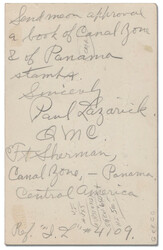 Send me on approval
a book of Canal Zone
& of Panama
stamps.
Sincerely
Paul Lazarick.
QMC.
Ft Sherman,
Canal Zone, – Panama
Central America
Ref. "S. D." #4109.